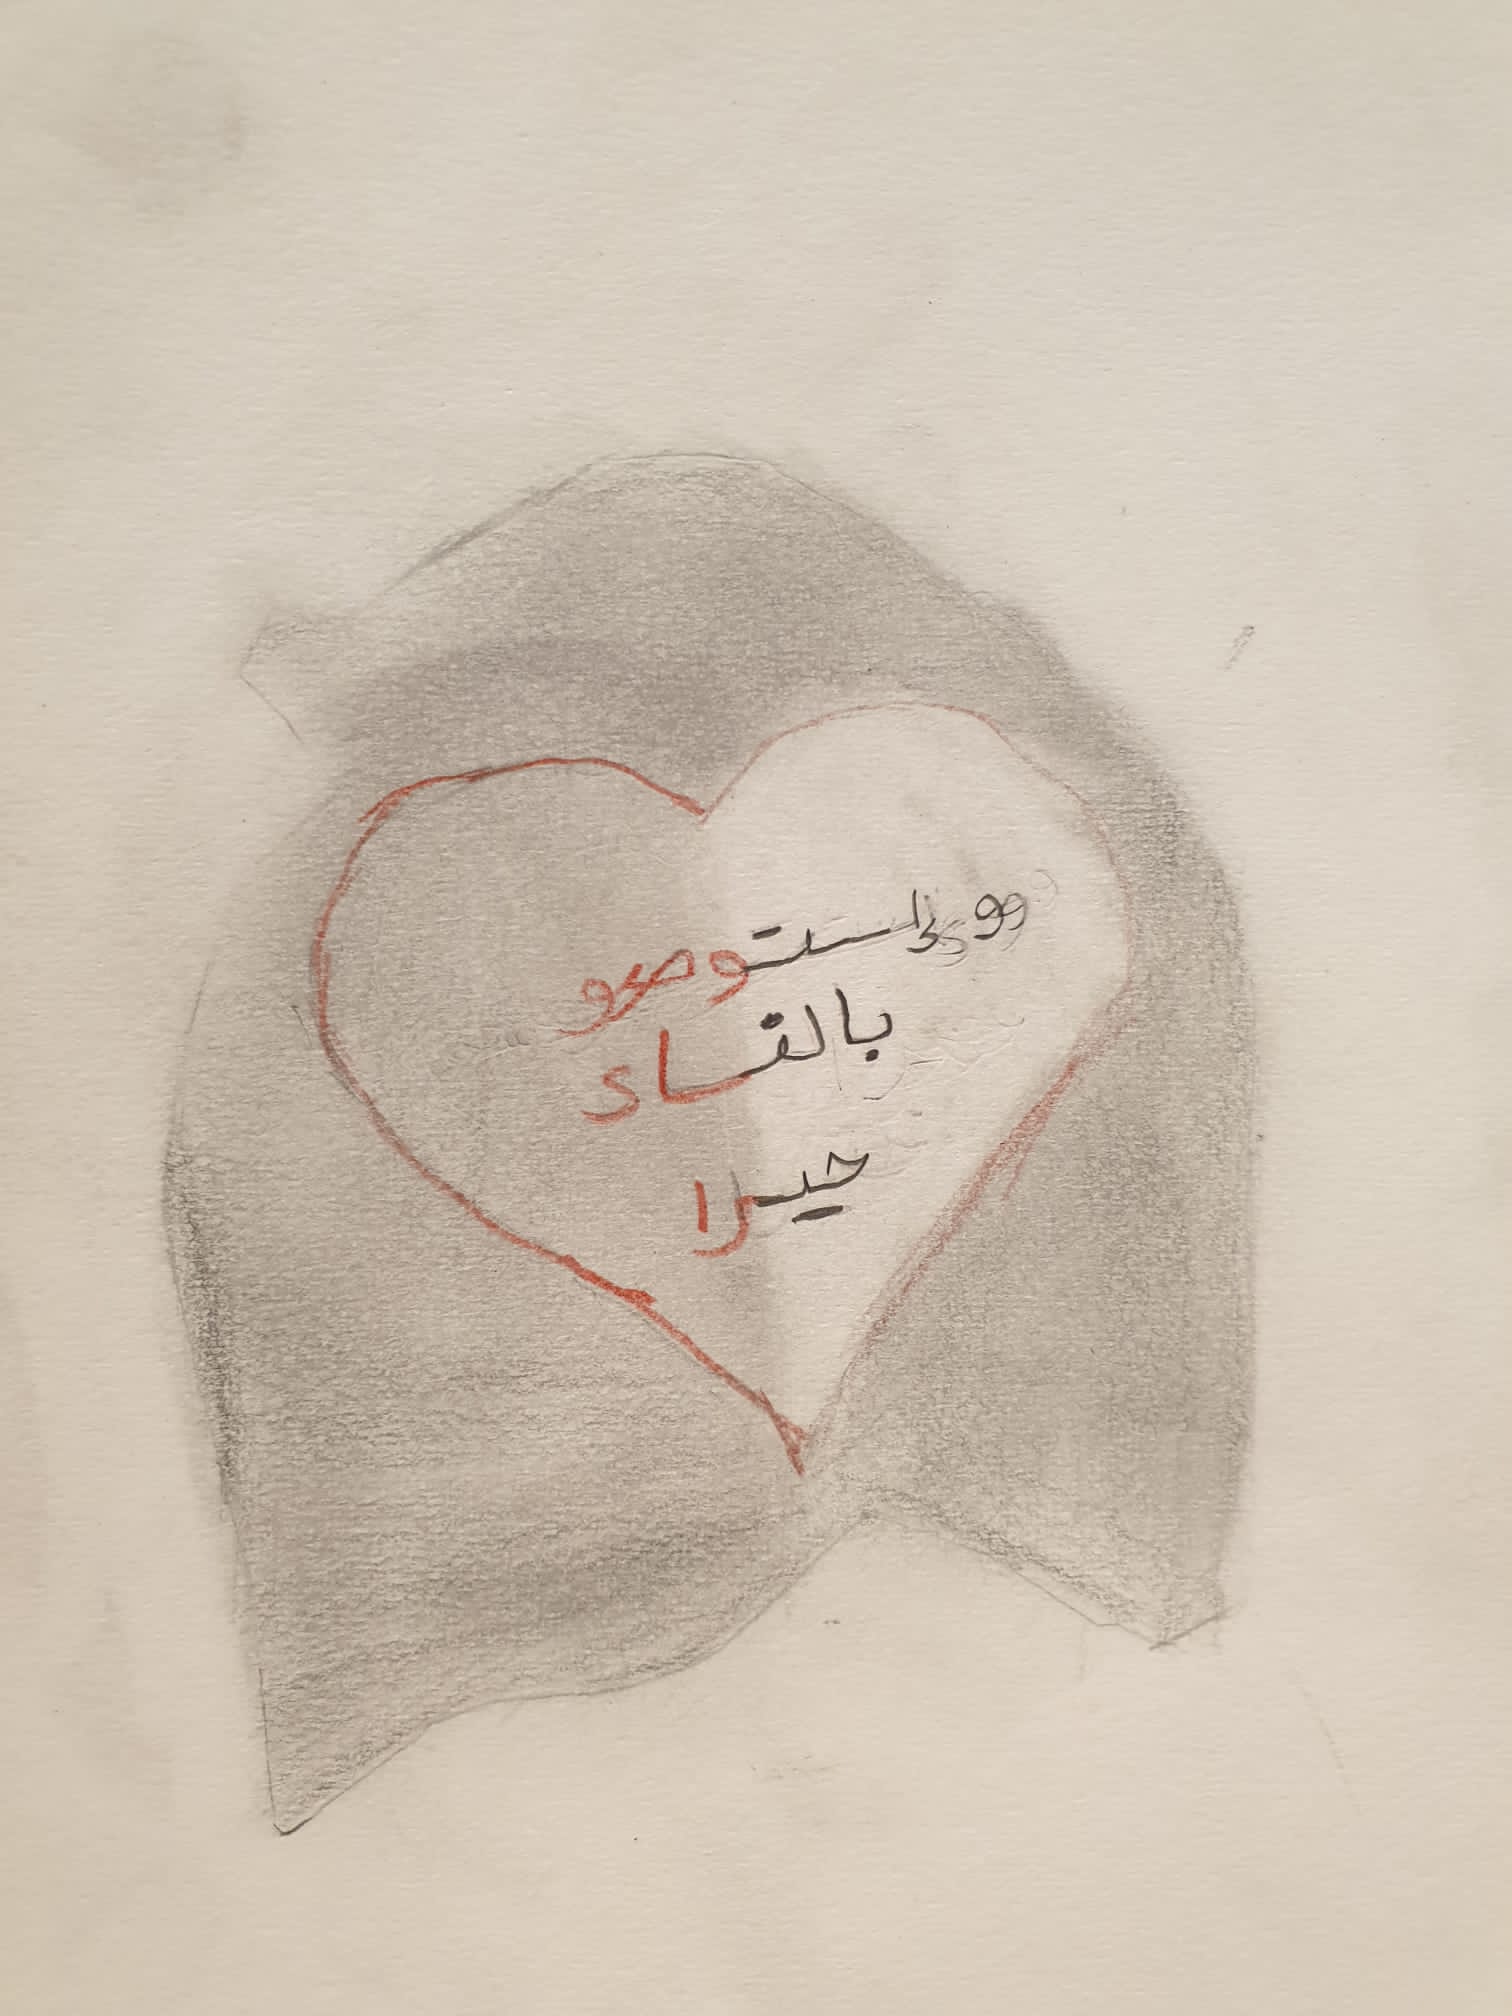 وو استوصو
بالنساء
خيرا